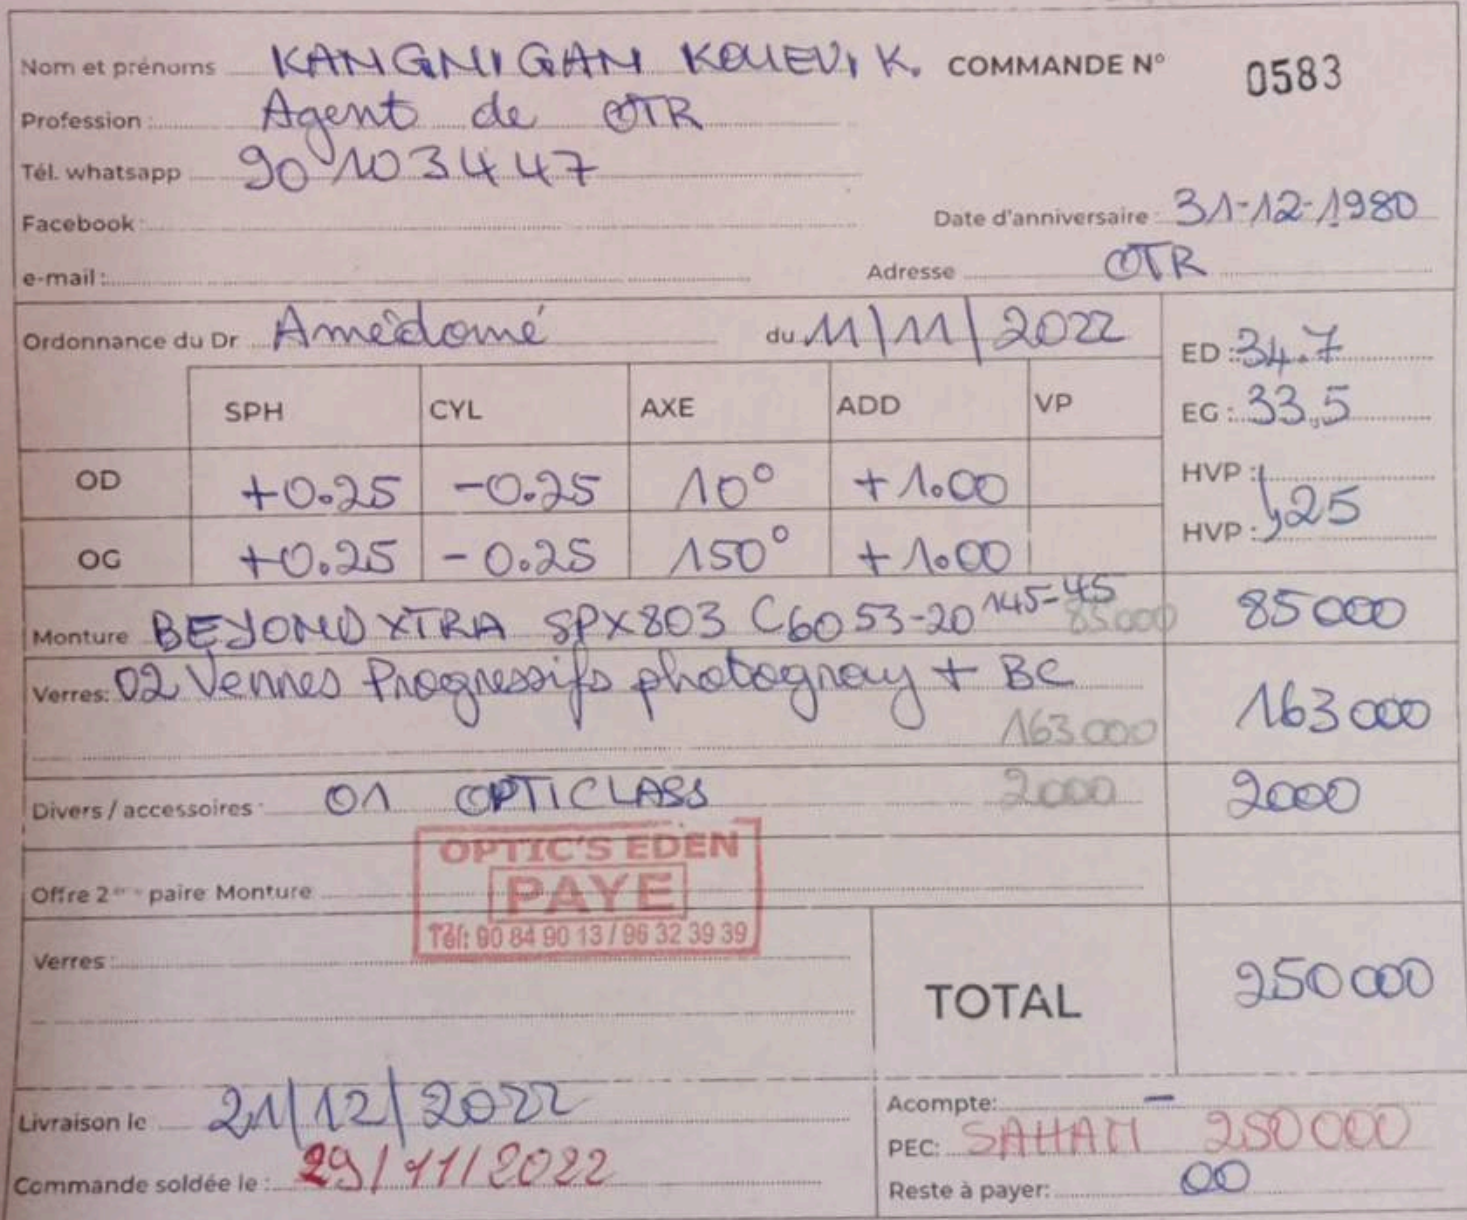 Nom et prénoms KANGNIGAN KOUEVI K. COMMANDE N° 0583
Profession : Agent de OTR
Tél. whatsapp 90103447
Facebook :
Date d'anniversaire : 31-12-1980
e-mail : Adresse OTR
Ordonnance du Dr Amèdomé du 11/11/2022
ED : 34.7
EG : 33,5
SPH CYL AXE ADD VP
OD +0.25 -0.25 10° +1.00
HVP :
HVP : 25
OG +0.25 -0.25 150° +1.00
Monture BEYOND XTRA SPX803 C60 53-20 145-45 85000 85000
Verres: 02 Verres Progressifs photogray + BC
163000 163000
Divers / accessoires : 01 OPTICLASS 2000 2000
OPTIC'S EDEN
PAYE
Tél: 90 84 90 13 / 96 32 39 39
Offre 2 paire Monture
Verres :
TOTAL 250000
Livraison le 21/12/2022
Commande soldée le : 29/11/2022
Acompte: -
PEC: 250000
Reste à payer: 00